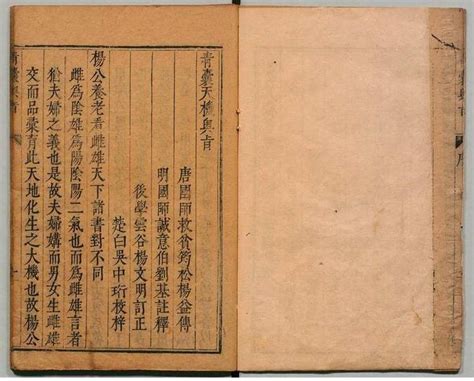 青囊天機奧旨
唐國師救貧筠松楊益傳
明國師誠意伯劉基註釋
後學雲谷楊文明訂正
楚白吳中珩校梓
楊公養老看雌雄天下諸書對不同
雌為陰雄為陽陰陽一氣也而為雌雄言者
猶夫婦之義也是故夫婦媾而男女生雌雄
交而品彙育此天地化生之大機也故楊公